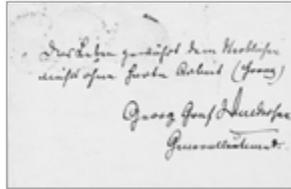 Das Leben gewährt dem Sterblichen
nichts ohne harte Arbeit (Horaz)
Georg Graf
Generalleutnant.